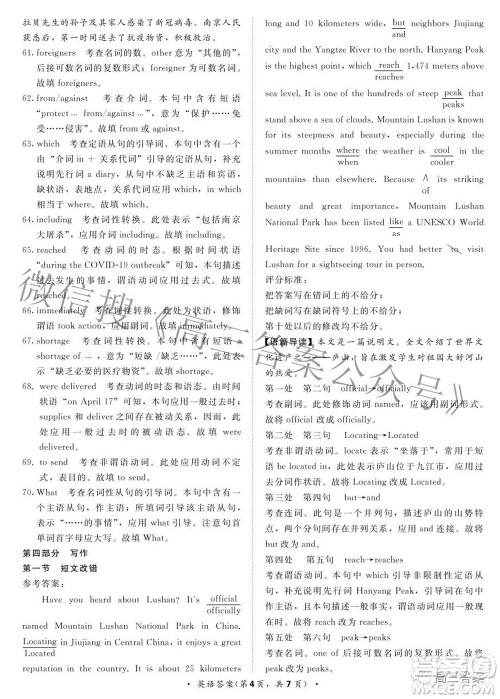 拉贝先生的孙子及其家人感染了新冠病毒。南京人民
获悉后，第一时间送去了抗疫物资，积极救治。
61. foreigners　考查名词的数。other 意为“其他的”，
后接可数名词的复数形式；根据句意可知，此处指外国人。
故填 foreigners。
62. from/against　考查介词。本句中含有短语
“protect... from/against ...”，意为“保护……免
受……侵害”。故填 from/against。
63. which　考查定语从句的引导词。本句中含有一个
由“介词 in ＋ 关系代词”引导的定语从句，补充
说明先行词 a diary，从句中不缺乏主语和宾语，
缺状语，表示“在日记里”，因此用 in which 相
当于 where 引导定语从句。故填 which。
64. including　考查词性转换。此处表示“包括南京
大屠杀”，应用介词。故填 including。
65. reached　考查动词的时态。根据时间状语
“during the COVID-19 outbreak”可知，本句描述
过去发生的事情，应用一般过去时。故填
reached。
66. immediately　考查词性转换。此处修饰动词短语
took action，应用副词。故填 immediately。
67. shortage　考查词性转换。本句中含有短语“a
shortage of ...”，意为“短缺/缺乏……”，此处表
示“缺乏必要的医疗物资”。故填 shortage。
68. were delivered　考查动词的时态和语态。根据时
间状语“on April 17”可知，本句应用一般过去时；
supplies 和 deliver 之间为动宾关系，因此此处
应用被动语态。故填 were delivered。
69. to send　考查非谓语动词。此处应用动词不定
式，表示目的。故填 to send。
70. What　考查名词性从句的引导词。此处引导主语
从句，且在从句中作主语，表示“……的事情”，
应用 what 引导，且单词位于句首首字母应大写。故填 What。
第四部分　写作
第一节　短文改错
参考答案：
Have you heard about Lushan? It's official
officially
named Mountain Lushan National Park in China.
Locating in Jiujiang in Central China, it enjoys a great
Located
reputation in the world. It is about 25 kilometers
long and 10 kilometers wide, but neighbors Jiujiang
and
city and the Yangtze River to the north. Hanyang Peak
is the highest point, which reach 1,474 meters above
reaches
sea level. It is one of the hundreds of steep peak that
peaks
stand above a sea of clouds. Mountain Lushan is known
for its steepness and beauty, especially during the
summer months where the weather is cool in the
when cooler
mountains than elsewhere. Because ∧ its
of
beauty and great importance, Mountain Lushan
National Park has been listed like a UNESCO World
as
Heritage Site since 1996. You had better to visit
Lushan for a sightseeing tour in person.
评分标准：
把答案写在错词上的不给分；
把缺词写在缺词符号上的不给分；
第十处以后的修改均不给分。
【语篇导读】本文是一篇说明文。全文介绍了世界文
化遗产之一——庐山，旨在激发学生对祖国大好河山
的热爱。
第一处　第二句　official→officially
考查副词。此处修饰动词 named，应该用副词形式。
故将 official 改为 officially。
第二处　第三句　Locating→Located
考查非谓语动词。locate 表示“坐落于”，常用短
语 be located in，此处表示庐山位于九江市，应用过
去分词作状语。故将 Locating 改为 Located。
第三处　第四句　but→and
考查连词。此句前后句意是并列关系，描述庐山的地势
和位置，没有表示转折的意思，应用连词 and 连接。
故将 but 改为 and。
第四处　第五句　reach→reaches
考查谓语动词。本句中 which 引导非限制性定语从
句，which 指代先行词 point，在从句中作主语，谓语
动词应用第三人称单数形式。故将 reach 改为
reaches。
第五处　第六句　peak→peaks
英语答案(第 4 页，共 7 页)
微信搜《高三答案公众号》
高三答案